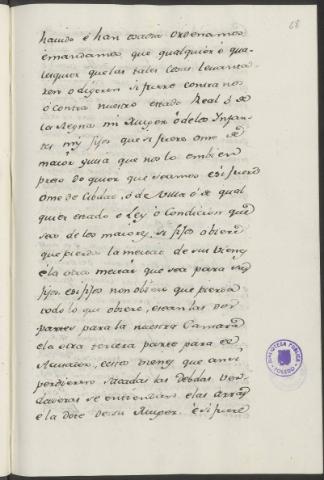 68
havido é han cosa Ordenamos
é mandamos que qualquier ó qua-
lesquier que las tales cosas levanta-
ren o dixeren si fuere contra nos
ó contra nuestro estado Real ó de
la Reyna mi Muger ó de los Infan-
tes mis fijos que si fuere ome de
maior guisa que nos lo embien
preso do quier que seamos é si fuere
Ome de Cibdat, ó de Villa ó de qual
quier estado o Ley o Condicion que
sea de los maiores, si fijos obiere
que pierda la meitad de sus vienes
é la otra meitad que sea para sus
fijos, é si fijos non obiere que pierda
todo lo que obiere, é sean las dos
partes para la nuestra Camara
é la otra tercera parte para el
Acusador, é estos vienes que ansi
perdieren sacadas las debdas ver-
daderas se entiendan é las arras
é la dote de su Muger. é si fuere
BIBLIOTECA PUBLICA
TOLEDO